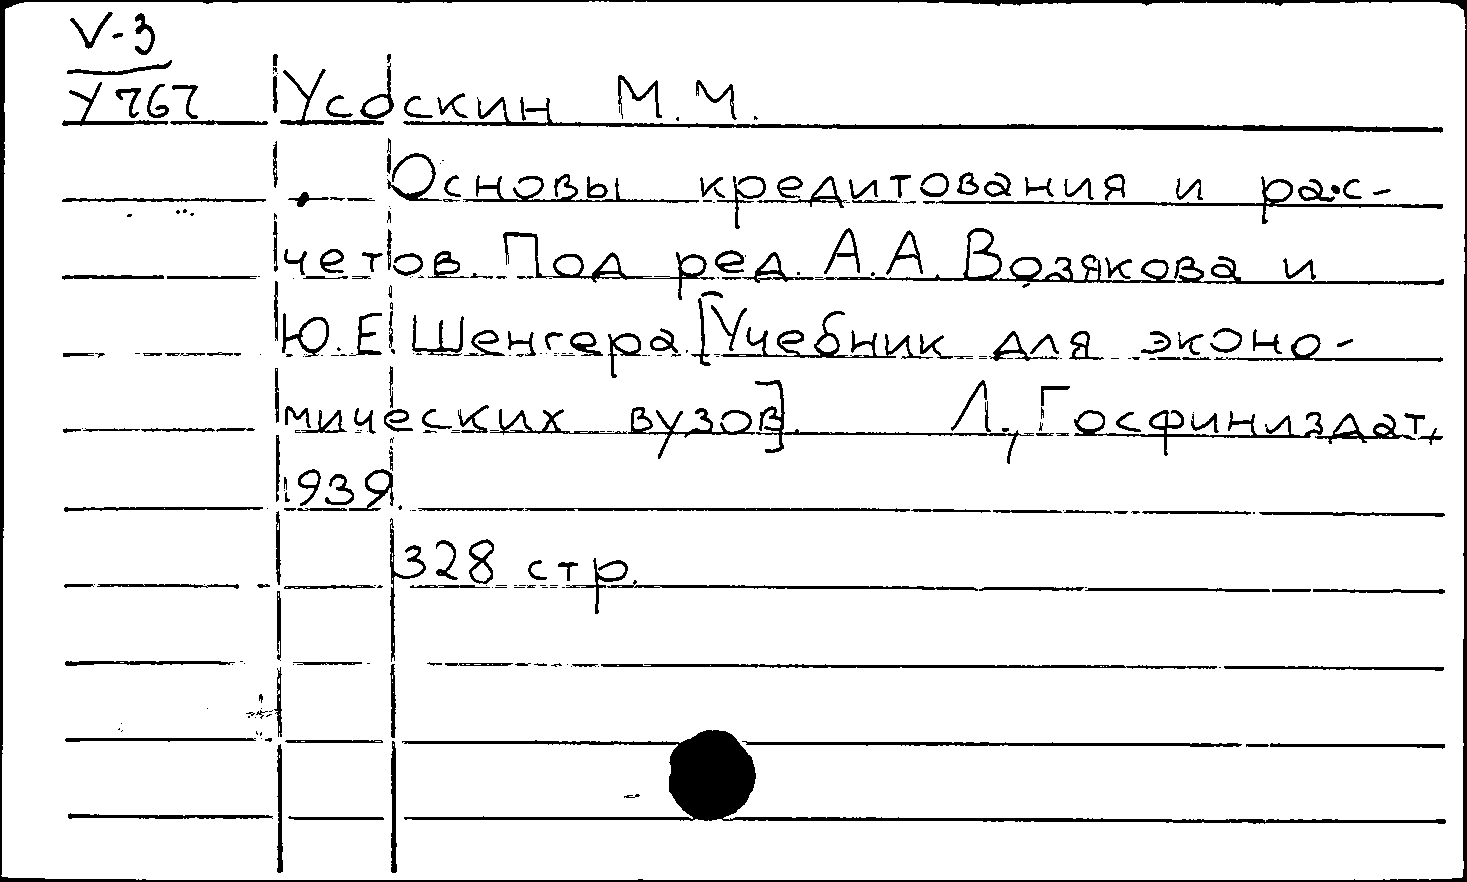 V-3
У767 Усоскин М.М.
Основы кредитования и рас-
четов. Под ред. А.А. Возякова и
Ю.Е. Шенгера. [Учебник для эконо-
мических вузов]. Л., Госфиниздат,
1939.
328 стр.